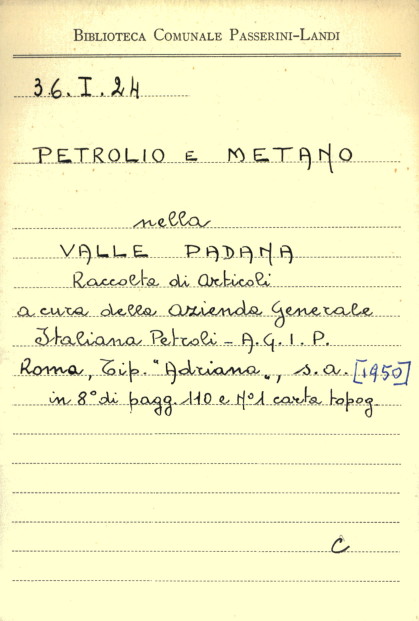 Biblioteca Comunale Passerini-Landi
36.I.24
PETROLIO E METANO
nella
VALLE PADANA
Raccolta di Articoli
a cura della Azienda Generale
Italiana Petroli - A.G.I.P.
Roma, Tip. "Adriana", s.a. [1950]
in 8° di pagg. 110 e N°1 carta topog.
C